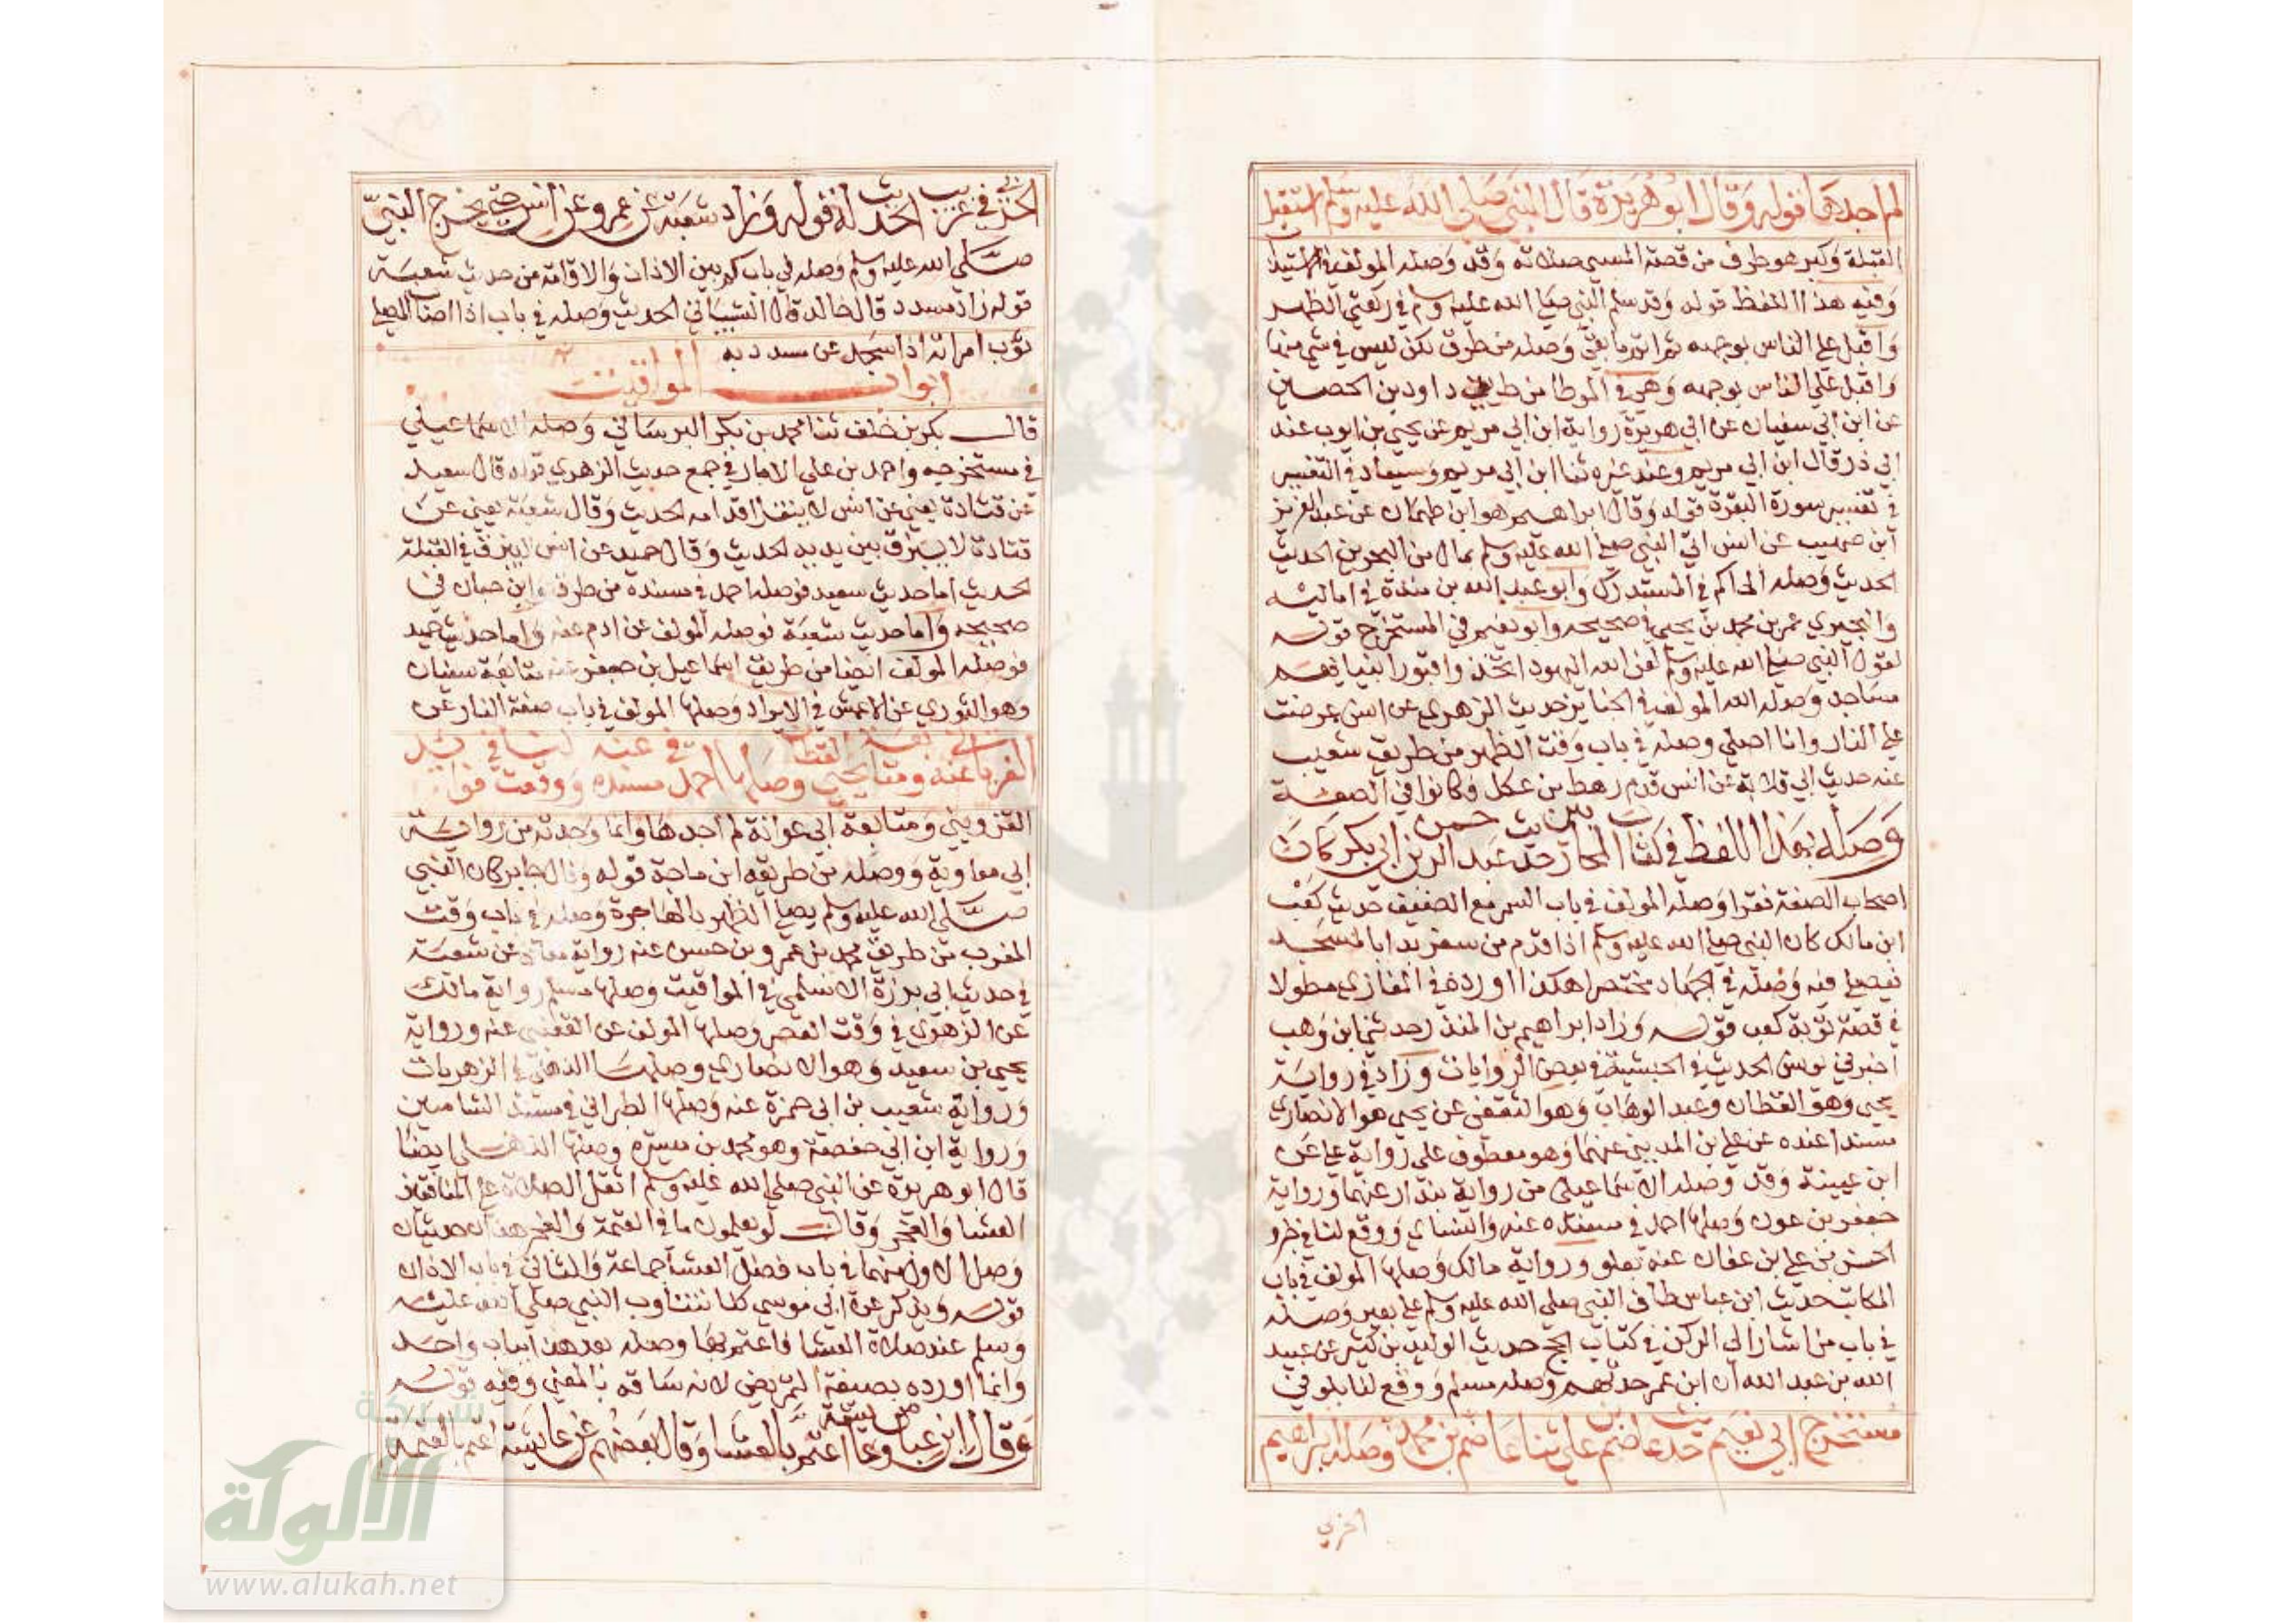 لم اجدها قوله وقال ابو هريرة قال النبي صلى الله عليه وسلم استقبل
القبلة وكبر هو طرف من قصة المسي صلاته وقد وصله المولف في الاستيذا
وفيه هذا اللفظ قوله وقد سلم النبي صلى الله عليه وسلم في ركعتي الظهر
واقبل على الناس بوجهه ثم اتم ما بقي وصله من طرق لكن ليس في شي منها
واقبل على الناس بوجهه وهي في الموطا من طريق داود بن الحصين
عن ابن ابي سفيان عن ابي هريرة رواية ابن ابي مريم عن يحيى بن ايوب عند
ابي ذر قال ابن ابي مريم وعند غيره ثنا ابن ابي مريم وسيعاد في التفسير
في تفسير سورة البقرة قوله وقال ابراهيم هو ابن طهمان عن عبد العزيز
ابن صهيب عن انس اتي النبي صلى الله عليه وسلم بمال من البحرين الحديث
الحديث وصله الحاكم في المستدرك وابو عبد الله بن مندة في اماليه
والبجيري عمر بن محمد بن يحيى في صحيحه وابو نعيم في المستخرج قوله
لقول النبي صلى الله عليه وسلم لعن الله اليهود اتخذوا قبور انبيائهم
مساجد وصله المولف في الجنايز حديث الزهري عن انس عرضت
علي النار وانا اصلي وصله في باب وقت الظهر من طريق شعيب
عنه حديث ابي قلابة عن انس قدم رهط من عكل وكانوا في الصفة
وصله بهذا اللفظ في كتاب المحاربين حديث عبد الرحمن بن ابي بكر كان
اصحاب الصفة فقرا وصله المولف في باب السمر مع الضيف حديث كعب
ابن مالك كان النبي صلى الله عليه وسلم اذا قدم من سفر بدا بالمسجد
فيصلي فيه وصله في الجهاد مختصرا هكذا اورده في المغازي مطولا
في قصة توبة كعب قوله وزاد ابراهيم بن المنذر حدثني ابن وهب
اخبرني يونس الحديث في الحبشية في بعض الروايات وزاد في رواية
يحيى وهو القطان وعبد الوهاب وهو الثقفي عن يحيى هو الانصاري
مسندا عنده عن علي بن المديني عنهما وهو معطوف على رواية علي عن
ابن عيينة وقد وصله الاسماعيلي من رواية بندار عنهما ورواية
جعفر بن عون وصلها احمد في مسنده عنه والنساي ووقع لنا في جزو
الحسن بن علي بن عفان عنه بعلو ورواية مالك وصلها المولف في باب
المكاتب حديث ابن عباس طاف النبي صلى الله عليه وسلم على بعير وصله
في باب من اشار الى الركن في كتاب الحج حديث الوليد بن كثير عن عبيد
الله بن عبد الله ان ابن عمر حدثهم وصله مسلم ووقع لنا بعلو في
مستخرج ابي نعيم حديث عاصم بن علي ثنا عاصم بن محمد وصله ابراهيم
الحربي
الحربي في غريب الحديث له قوله وزاد شعبة عن عمرو عن انس حتى يخرج النبي
صلى الله عليه وسلم وصله في باب كم بين الاذان والاقامة من حديث شعبة
قوله زاد مسدد قال خالد قال الشيباني الحديث وصله في باب اذا اصاب المصلي
ثوب امراته اذا سجد عن مسدد به
ابواب المواقيت
قال بكر بن خلف ثنا محمد بن بكر البرساني وصله الاسماعيلي
في مستخرجه واحمد بن علي الابار في جمع حديث الزهري قوله قال سعيد
عن قتادة يعني عن انس لا يتفل قدامه الحديث وقال شعبة يعني عن
قتادة لا يبزق بين يديه الحديث وقال حميد عن انس لا يبزق في القبلة
الحديث اما حديث سعيد فوصله احمد في مسنده من طرق وابن حبان في
صحيحه واما حديث شعبة فوصله المولف عن ادم عنه واما حديث حميد
فوصله المولف ايضا من طريق اسماعيل بن جعفر عنه متابعة سفيان
وهو الثوري عن الاعمش في الابراد وصلها المولف في باب صفة النار عن
الفريابي عنه ومتابعة يحيى القطان وصلها احمد في مسنده عنه ووقعت لنا في فوايد
القزويني ومتابعة ابي عوانة لم اجدها وانما وجدته من رواية
ابي معاوية ووصله من طريقه ابن ماجة قوله وقال جابر كان النبي
صلى الله عليه وسلم يصلي الظهر بالهاجرة وصله في باب وقت
المغرب من طريق محمد بن عمرو بن حسن عنه رواية معاذ عن شعبة
في حديث ابي برزة الاسلمي في المواقيت وصلها مسلم رواية مالك
عن الزهري في وقت العصر وصلها المولف عن القعنبي عنه ورواية
يحيى بن سعيد وهو الانصاري وصلها الذهلي في الزهريات
ورواية شعيب بن ابي حمزة عنه وصلها الطبراني في مسند الشاميين
ورواية ابن ابي حفصة وهو محمد بن ميسرة وصلها الذهلي ايضا
قال ابو هريرة عن النبي صلى الله عليه وسلم اثقل الصلاة على المنافقين
العشا والفجر وقال لو يعلمون ما في العتمة والفجر هذان حديثان
وصل الاول منهما في باب فضل العشا جماعة والثاني في باب الاذان
قوله ويذكر عن ابي موسى كنا نتناوب النبي صلى الله عليه
وسلم عند صلاة العشا فاعتم بها وصله بعد هذا بباب واحد
وانما اورده بصيغة التمريض لانه ساقه بالمعنى وفيه قوله
وقال ابن عباس وعايشة اعتم بالعشا وقال بعضهم عن عايشة اعتم بالعتمة
شبكة
الالوكة
www.alukah.net